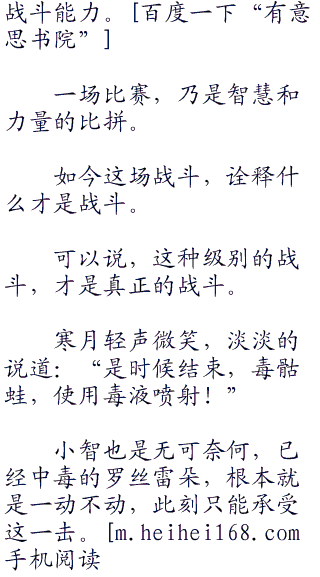 战斗能力。[百度一下“有意
思书院”]
一场比赛，乃是智慧和
力量的比拼。
如今这场战斗，诠释什
么才是战斗。
可以说，这种级别的战
斗，才是真正的战斗。
寒月轻声微笑，淡淡的
说道：“是时候结束，毒骷
蛙，使用毒液喷射！”
小智也是无可奈何，已
经中毒的罗丝雷朵，根本就
是一动不动，此刻只能承受
这一击。[m.heihei168.com
手机阅读